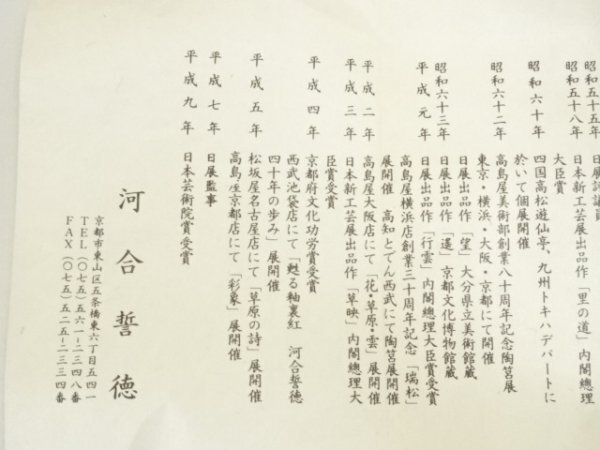 昭和五十五年 日展評議員
昭和五十八年 日本新工芸展出品作「里の道」内閣総理
大臣賞
昭和六十年 四国高松遊仙亭、九州トキハデパートに
於いて個展開催
昭和六十二年 高島屋美術部創業八十周年記念陶筥展
東京・横浜・大阪・京都にて開催
日展出品作「望」大分県立美術館蔵
昭和六十三年 日展出品作「遥」京都文化博物館蔵
平成元年 日展出品作「行雲」内閣總理大臣賞受賞
高島屋横浜店創業三十周年記念「瑞松」
展開催 高知とでん西武にて陶筥展開催
平成二年 高島屋大阪店にて「花・草原・雲」展開催
平成三年 日本新工芸展出品作「草映」内閣總理大
臣賞受賞
平成四年 京都府文化功労賞受賞
西武池袋店にて「甦る釉裏紅 河合誓徳
四十年の歩み」展開催
平成五年 松坂屋名古屋店にて「草原の詩」展開催
高島屋京都店にて「彩象」展開催
平成七年 日展監事
平成九年 日本芸術院賞受賞
河合誓徳
京都市東山区五条橋東六丁目五四一
TEL(〇七五)五六一-二三四八番
FAX(〇七五)五二五-二三三四番